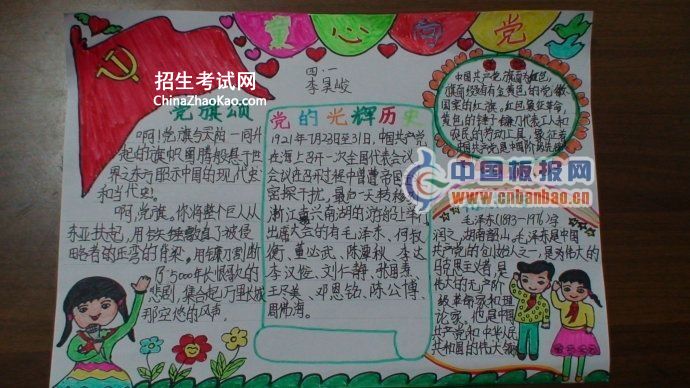 童心向党
四.一
李昊峻
招生考试网
ChinaZhaoKao.com
党旗颂
啊!党旗,与天的一同升
起的旗帜
东方昭示中国的现代史
和当代史!
啊,党旗。你将整个巨人从
东亚扶起,用
略者的歪弯的背梁。用镰刀割断
了5000年长恨歌的
悲剧,集合起万里长城
那空他的风声。
党的光辉历史
1921年7月23日至31日,中国共产党
在上海召开一次全国代表会议
会议在召开过程中曾遭帝国
密探干扰,最后一天转移
浙江嘉兴南湖的游船上举
出席大会的有毛泽东、何叔
衡、董必武、陈潭秋、李达
李汉俊、刘仁静、张国焘、
王尽美、邓恩铭、陈公博、
周佛海。
中国共产党旗面为红色,
旗面缀有金黄色的党徽
国家的红旗,红色象征革命,
黄色的锤子镰刀代表工人和
农民的劳动工具,象征着
中国共产党是中国
中国板报网
www.cnbanbao.cn
毛泽东(1893-1976)字
润之,湖南韶山。毛泽东是中国
共产党的创始人之一,是为伟大的
马克思主义者,是
伟大的无产阶
级革命家和理
论家,他是中国
共产党和中华人民
共和国的伟大领